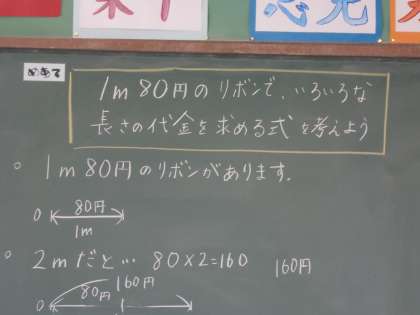 めあて
1m 80円のリボンで、いろいろな
長さの代金を求める式を考えよう
○ 1m 80円のリボンがあります.
80円
0
1m
○ 2mだと… 80×2=160 160円
160円
80円
0